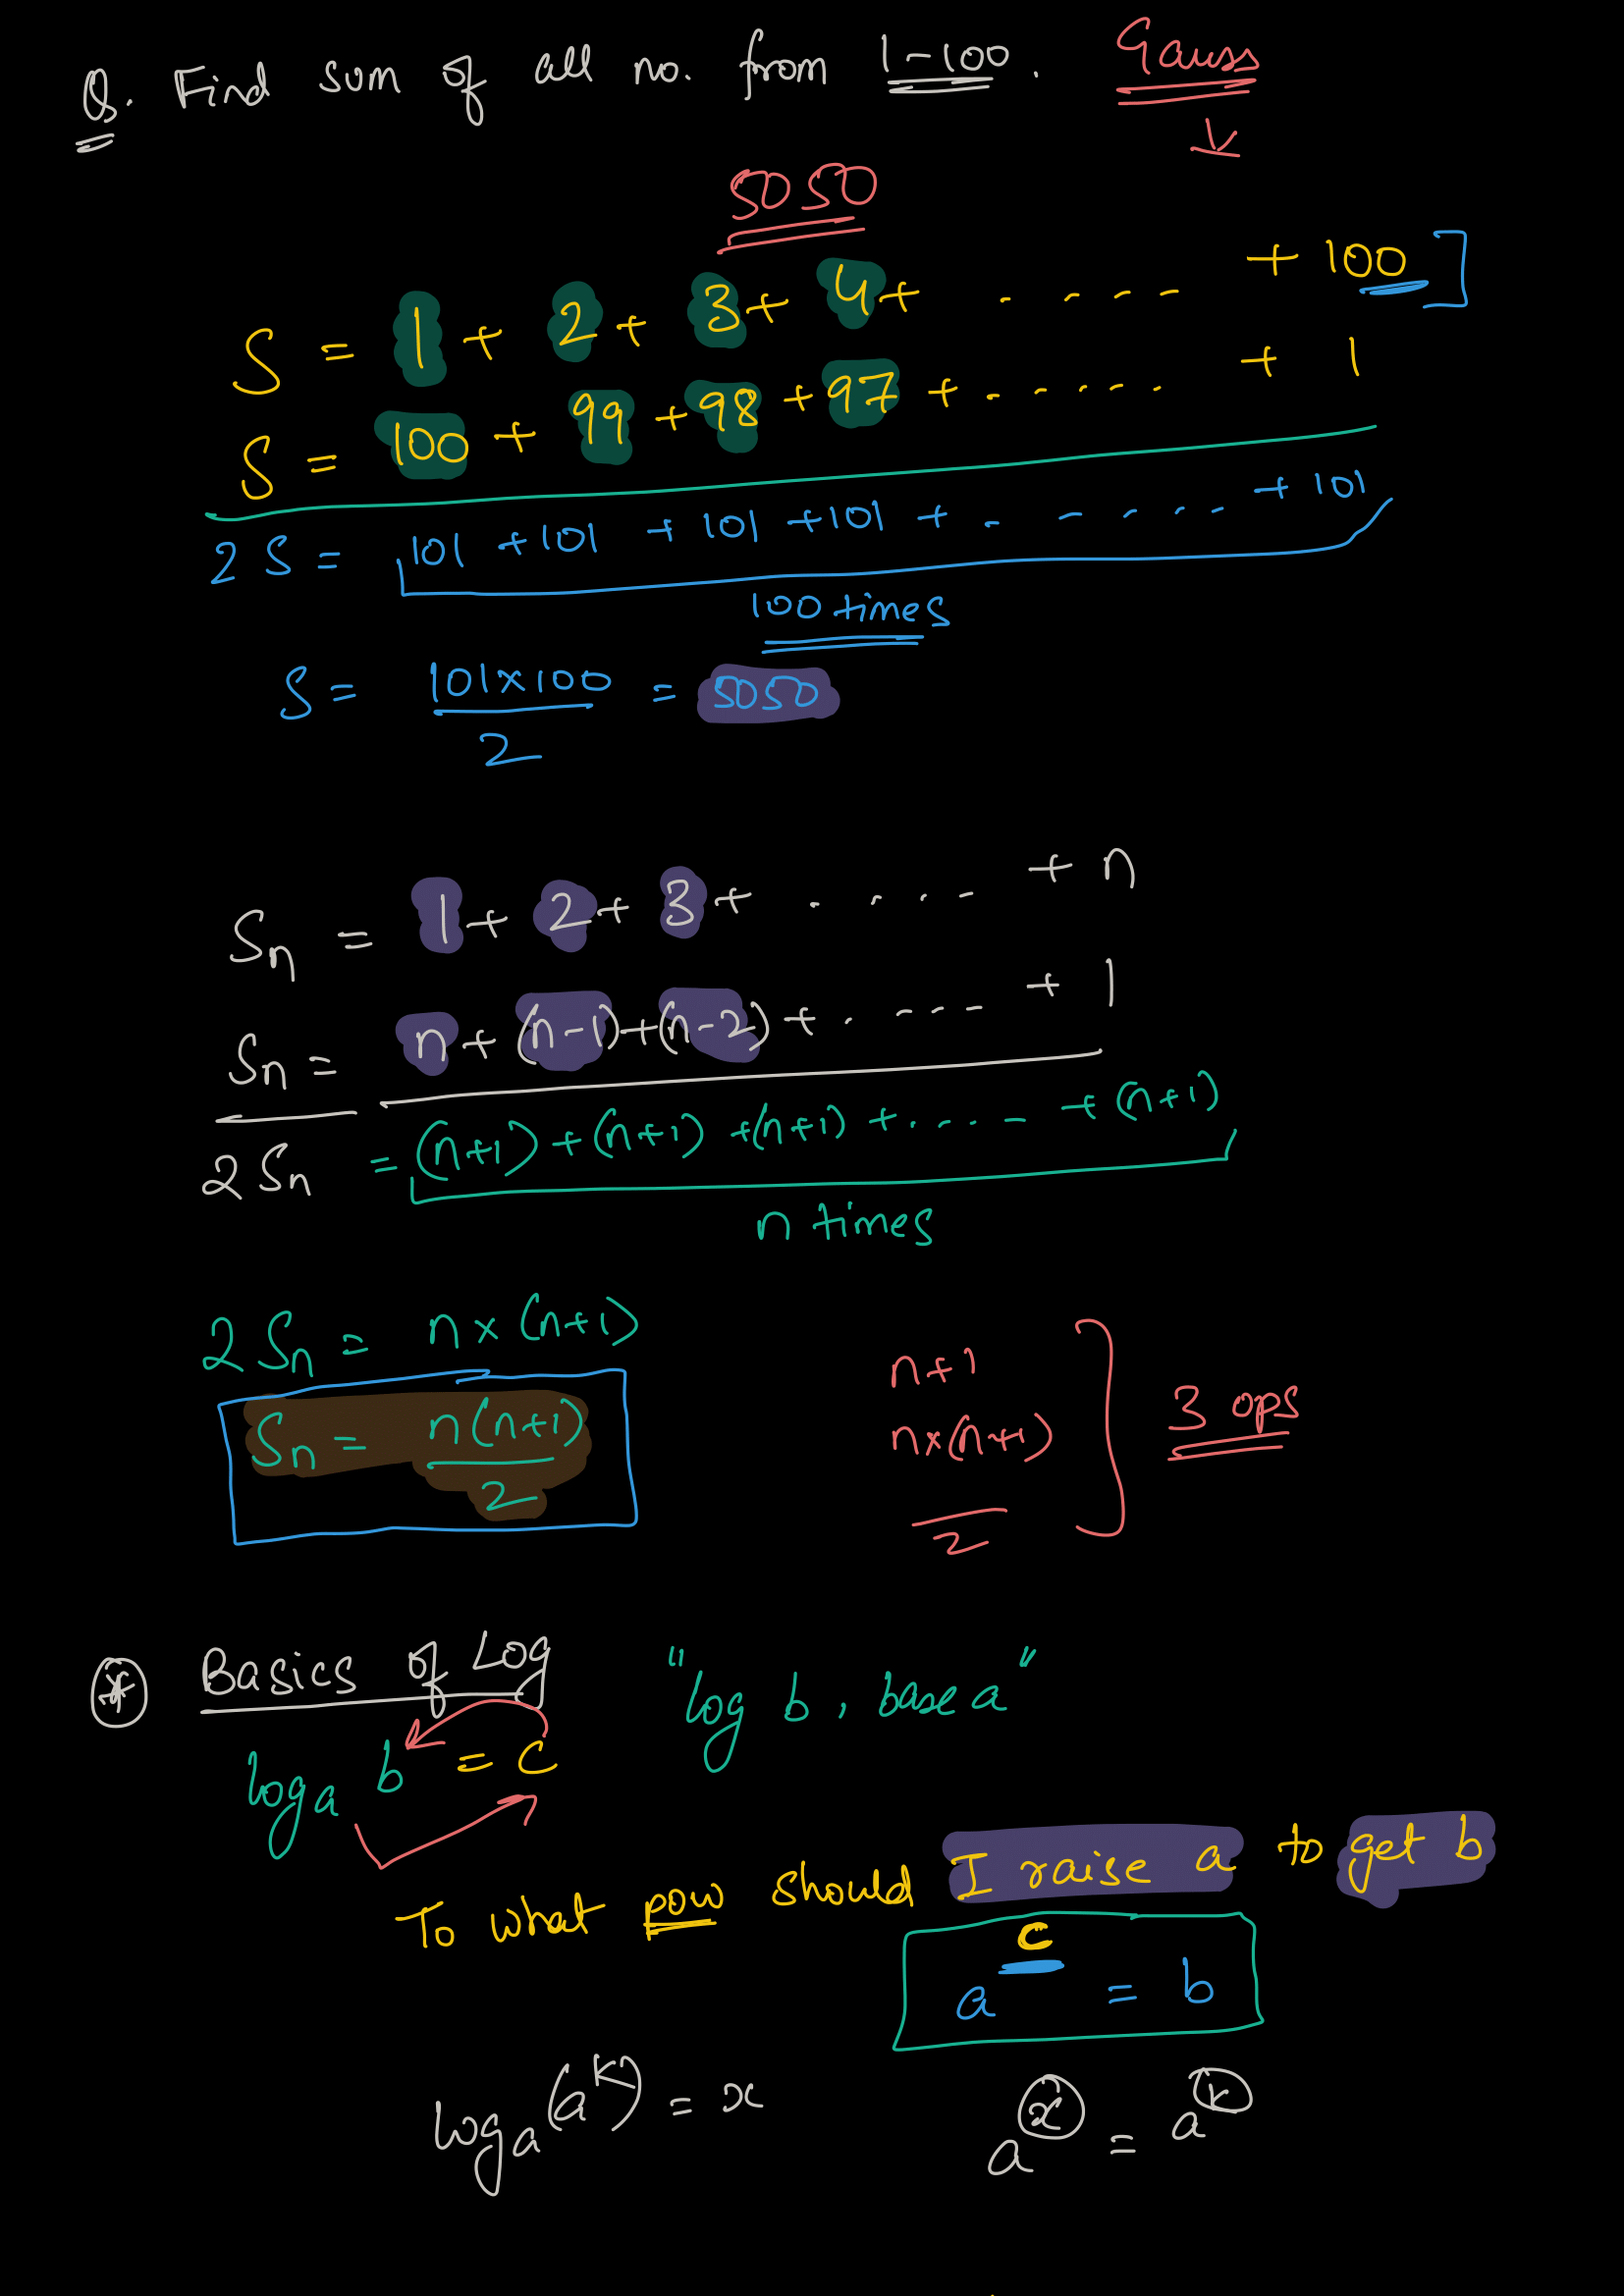 Q. Find sum of all no. from 1-100. Gauss
5050
S = 1 + 2 + 3 + 4 + . . . . . + 100 ]
S = 100 + 99 + 98 + 97 + . . . . . . + 1
2S = 101 + 101 + 101 + 101 + . . . . . . + 101
100 times
S = 101×100 / 2 = 5050
Sn = 1 + 2 + 3 + . . . . . + n
Sn = n + (n-1) + (n-2) + . . . . . + 1
2Sn = (n+1) + (n+1) + (n+1) + . . . . . + (n+1)
n times
2Sn = n × (n+1)
Sn = n(n+1) / 2
n+1
n×(n+1)
/ 2
3 ops
* Basics of Log "log b, base a"
log_a b = c
To what pow should I raise a to get b
a^c = b
log_a (a^k) = x a^x = a^k